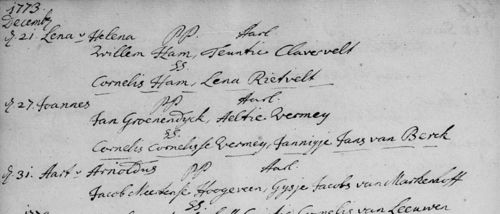 1773.
Decemb
d 21. Lena v Helena PP. Aarl
Willem Ham, Teuntie Clavervelt
SS.
Cornelis Ham, Lena Rietvelt
d 27. Joannes PP. Aarl.
Jan Groenendyck, Aeltie Vermey
SS.
Cornelis Cornelisse Vermey, Jannigje Jans van Berck
d 31. Aart v Arnoldus PP. Aarl.
Jacob Meertense Hoogeveen, Gysje Jacobs van Markenhoff
SS.
Cornelis van Leeuwen